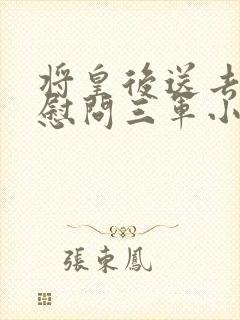 將皇後送去
慰問三軍小
張東鳳